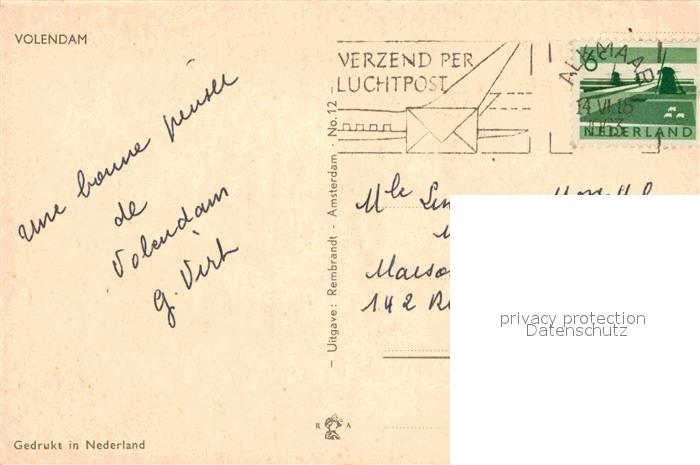 VOLENDAM
une bonne pensée
de
Volendam
G. Virh
VERZEND PER
LUCHTPOST
ALKMAAR
14 VI 18
1963
6c
NEDERLAND
Mlle
Maiso
142 R
— Uitgave: Rembrandt - Amsterdam - No. 12 —
privacy protection
Datenschutz
R A
Gedrukt in Nederland